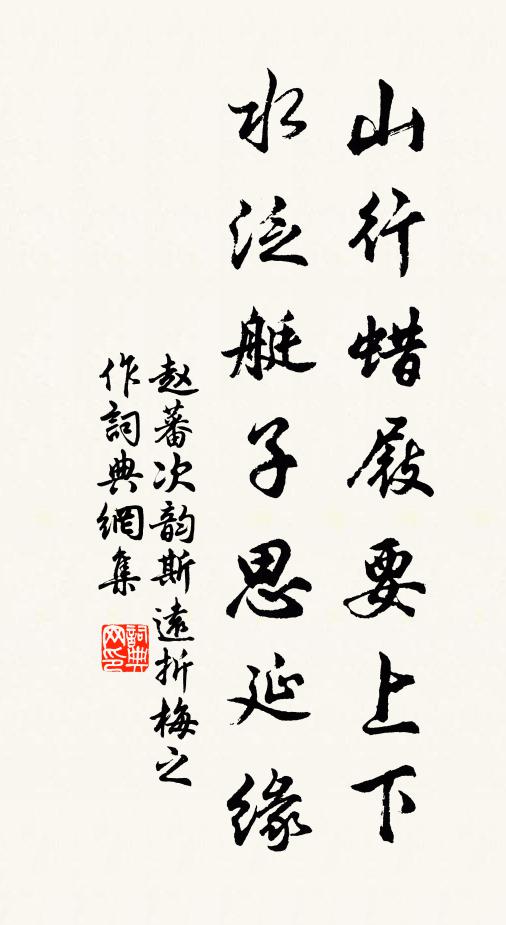 山行蜡屐要上下
水泛艇子思延缘
赵蕃次韵斯遠折梅之
作詞典網集
詞典网印